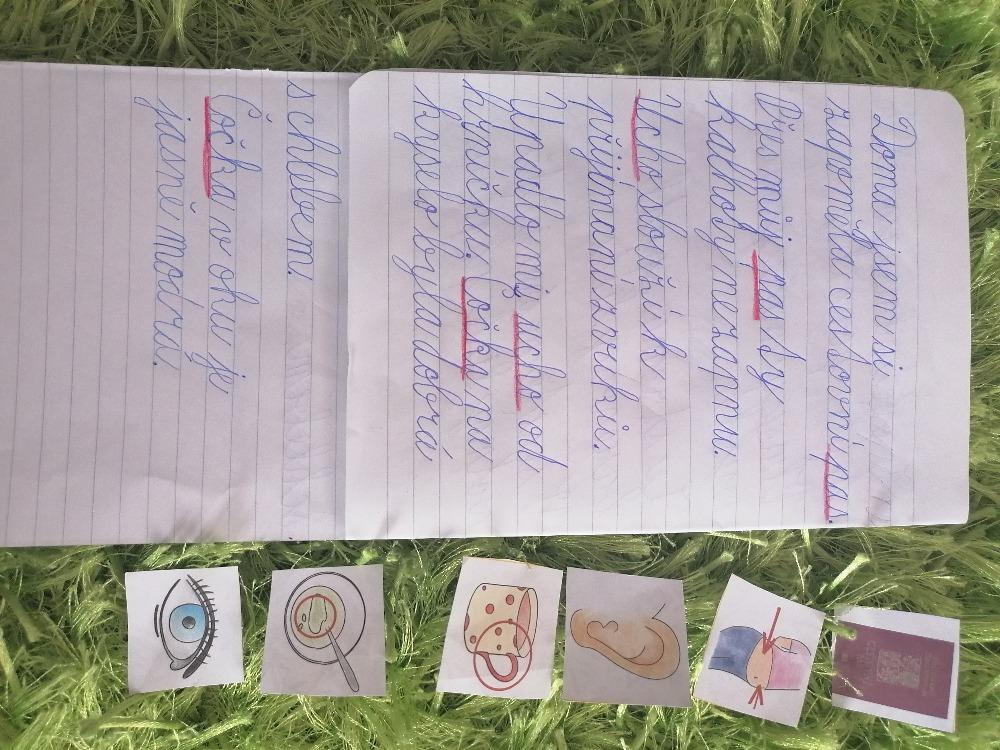 Doma jsem si
zapoměla cestovní pas.
Přes můj pas ty
kalhoty nezapnu.
Ucho slouží k
přijímání zvuků.
Upadlo mi ucho od
hrníčku. Čočka na
kyselo byla dobrá
s chlebem.
Čočka v oku je
jasně modrá.